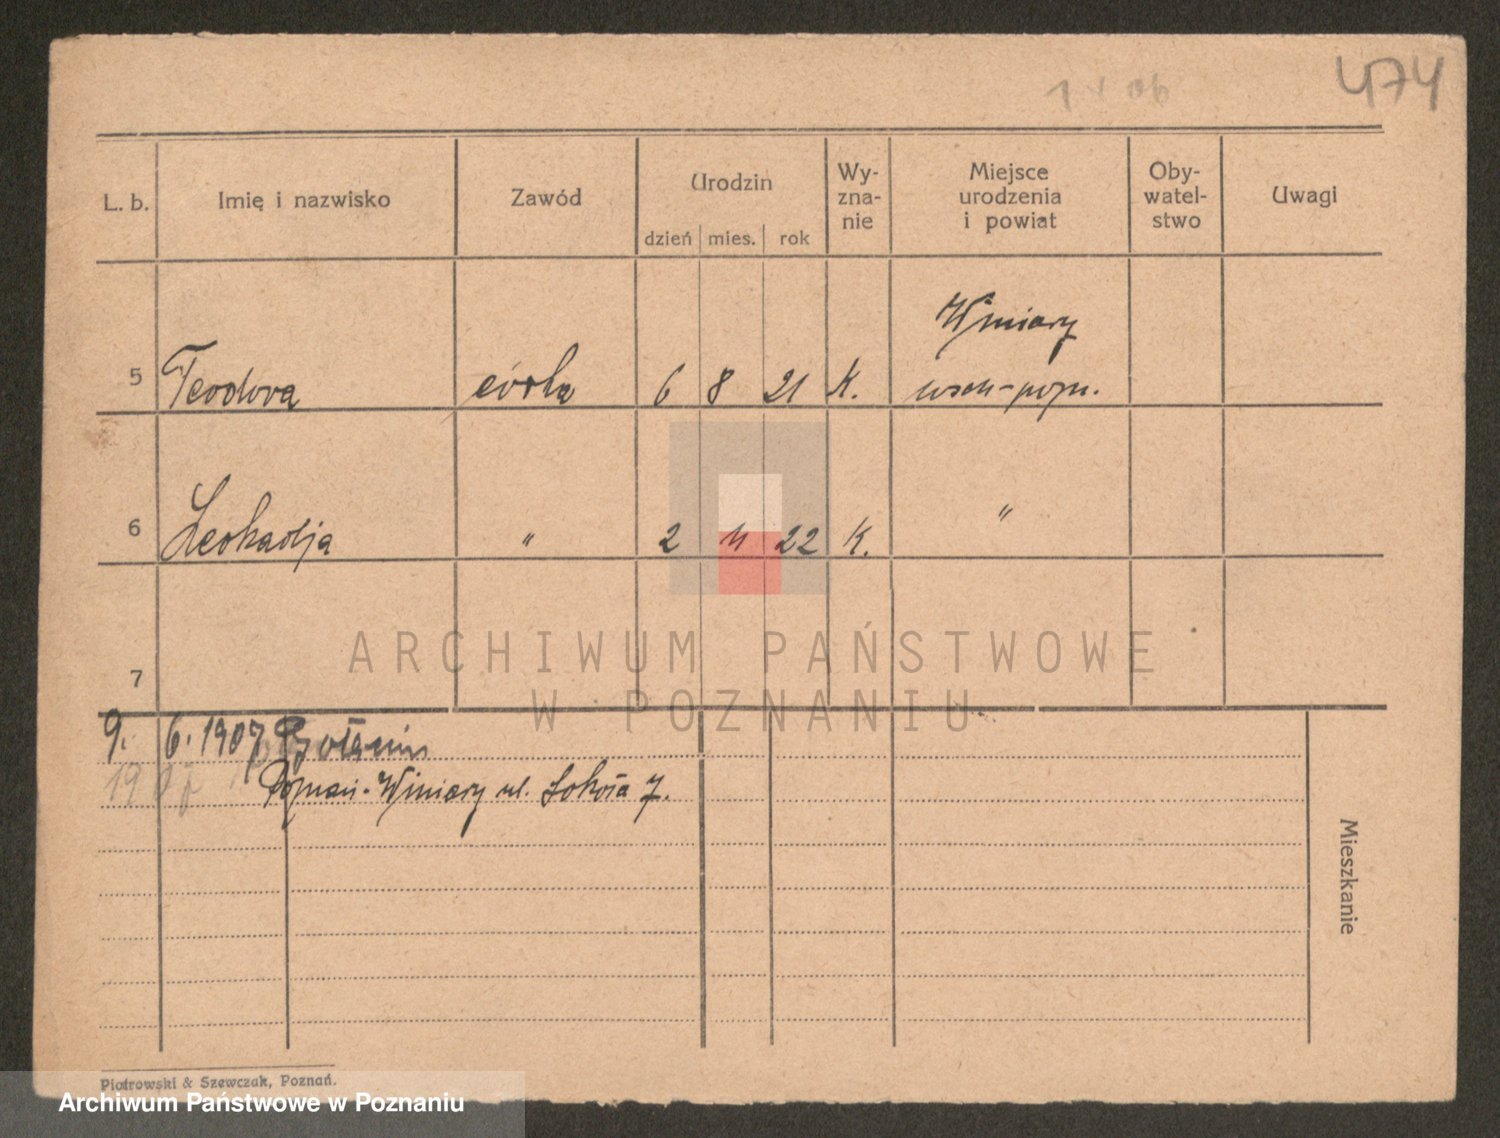 474
L. b. Imię i nazwisko Zawód Urodzin dzień mies. rok Wy-zna-nie Miejsce urodzenia i powiat Oby-watel-stwo Uwagi
Winiary
5 Teodora córka 6 8 21 K. wsch-pozn.
6 Leokadja " 2 11 22 K. "
ARCHIWUM PAŃSTWOWE
7
W POZNANIU
9. 6. 1907
Poznań-Winiary ul. 7.
Mieszkanie
Piotrowski & Szewczak, Poznań.
Archiwum Państwowe w Poznaniu